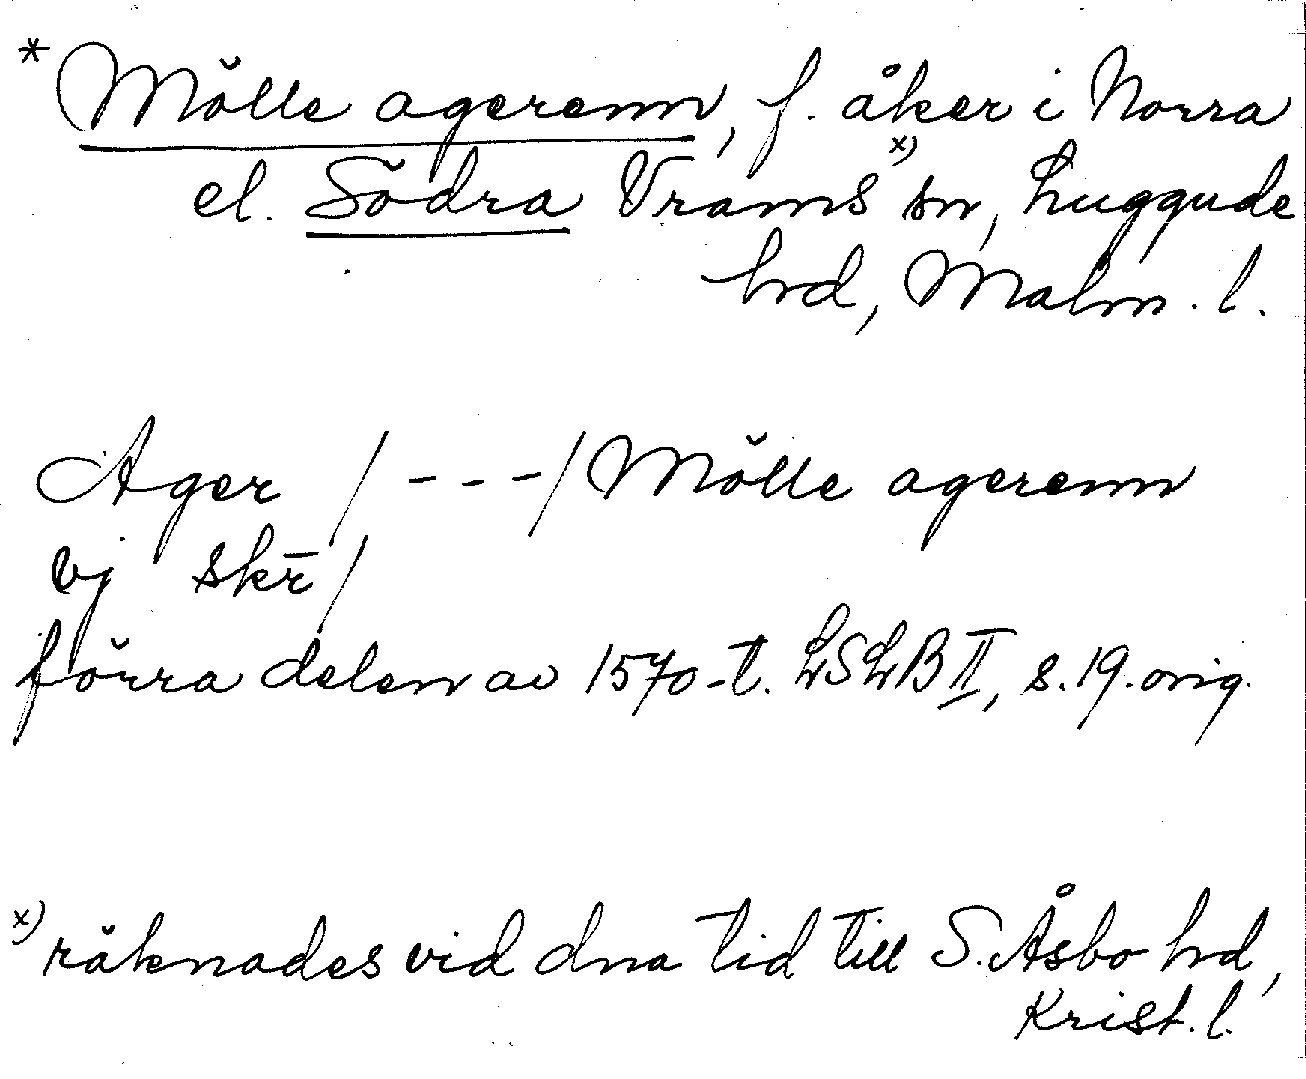 * Mölle agerenn, f. åker i Norra
el. Södra Vrams x) sn, Luggude
hrd, Malm. l.
Ager /---/ Mölle agerenn
vj skr̄ /
förra delen av 1570-t. LSLB II, s. 19. orig.
x) räknades vid dna tid till S. Åsbo hrd,
Krist. l.